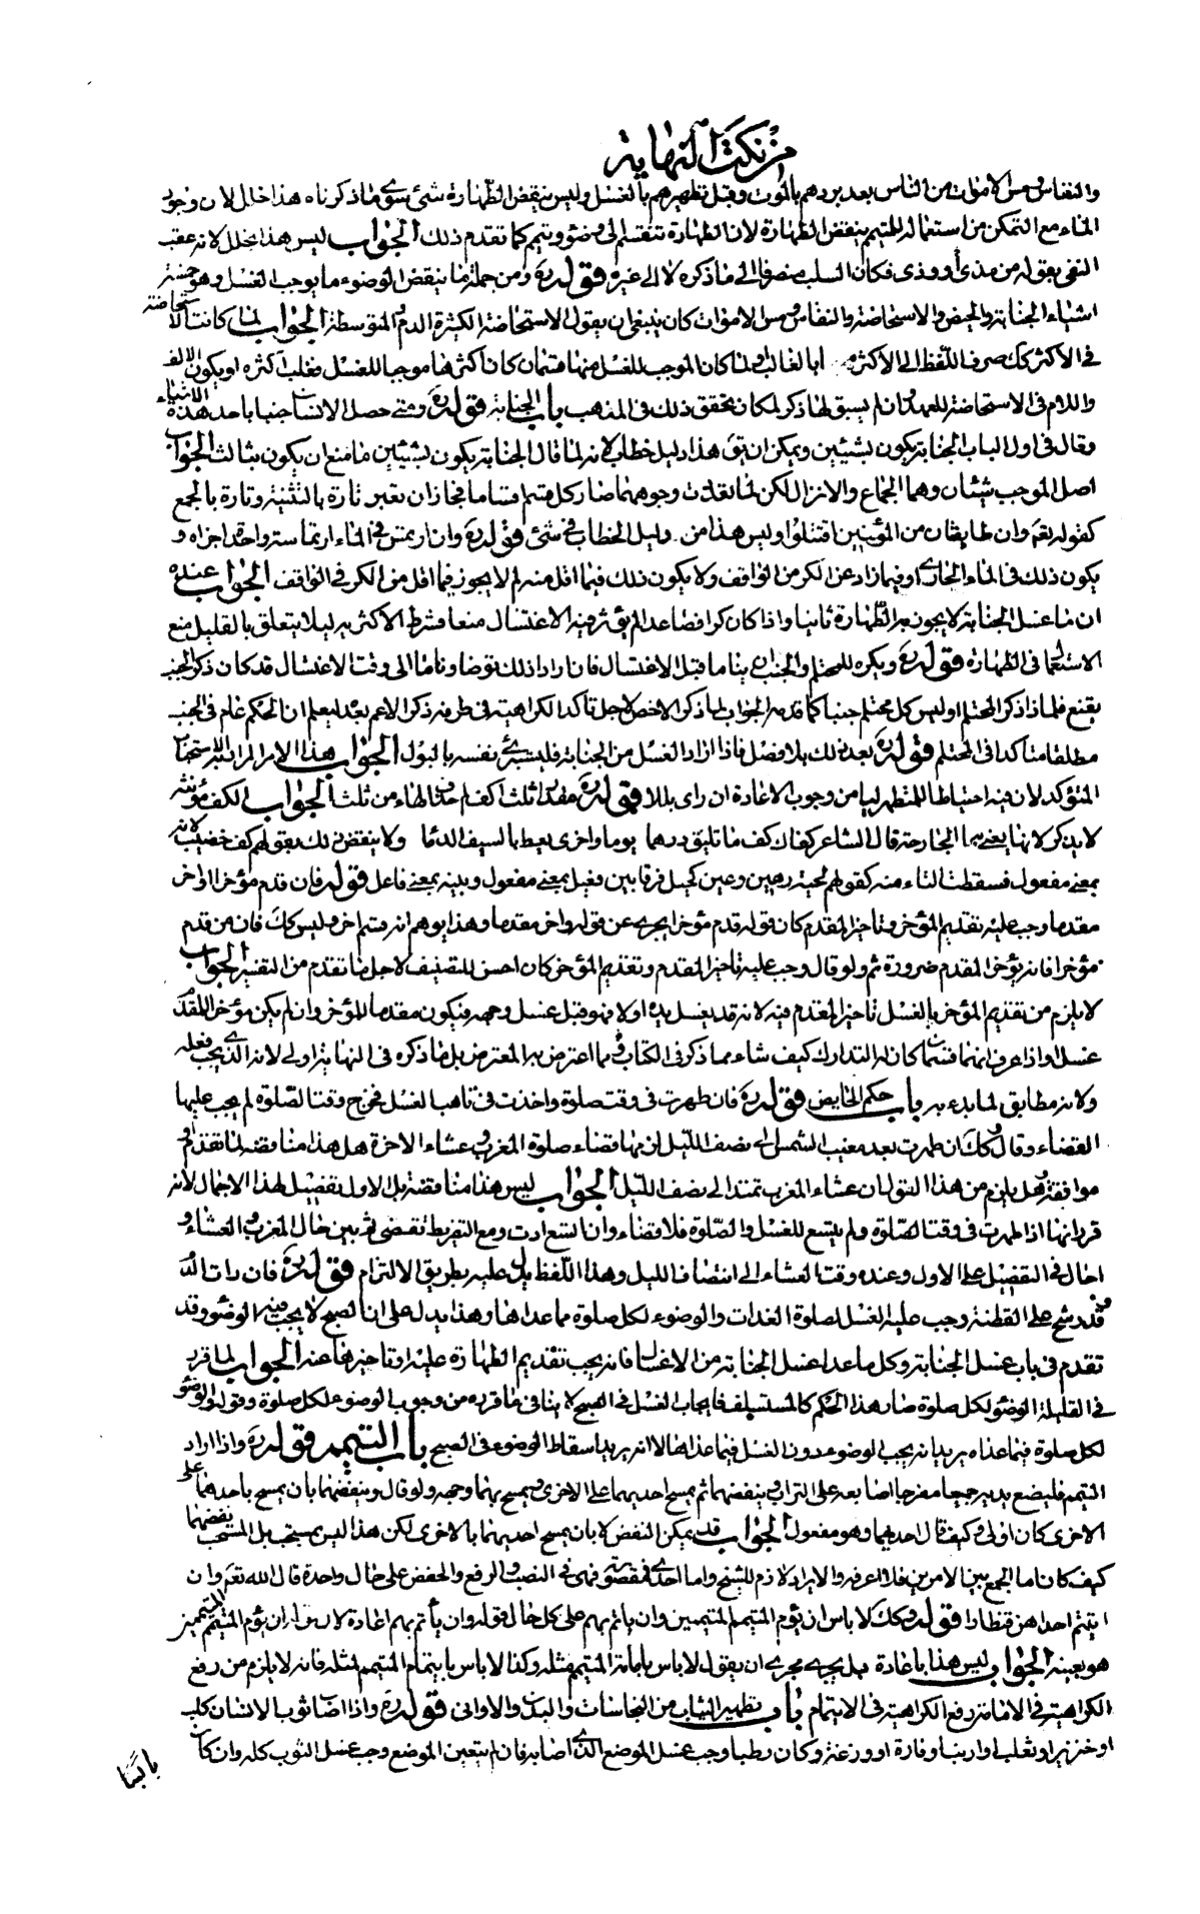 من نكت النهاية
والنفاس ومس الاموات من الناس بعد بردهم بالموت وقبل تطهيرهم بالغسل وليس ينقض الطهارة شئ سوى ما ذكرناه هذا خلل لان وجود
الماء مع التمكن من استعماله للمتيمم ينقض الطهارة لان الطهارة تنقسم الى وضوء وتيمم كما تقدم ذلك الجواب ليس هذا بخلل لانه عقب
النفى بقوله من مذى أو وذى فكان السلب منصرفا الى ما ذكره لا الى غيره قوله ره ومن جملة ما ينقض الوضوء ما يوجب الغسل وهو خمسة
اشياء الجنابة والحيض والاستحاضة والنفاس ومس الاموات كان ينبغى ان يقول الاستحاضة الكثيرة الدم او المتوسطة الجواب لما كانت الاستحاضة
فى الاكثر كك صرف اللفظ الى الاكثر الغالب ولما كان الموجب للغسل منها قسمان كان اكثرها موجبا للغسل فغلب كثره او يكون الالف
واللام فى الاستحاضة للعهد وان لم يسبق لها ذكر لمكان تحقق ذلك فى المذهب باب الجنابة قوله ره ومتى حصل الانسان جنبا باحد هذه الاشياء
وقال فى اول الباب الجنابة يكون بشيئين ويمكن ان يق هذا دليل خطاب لانه لما قال الجنابة يكون بشيئين ما منع ان يكون بثالث الجواب
اصل الموجب شيئان وهما الجماع والانزال لكن لما تعددت وجوههما صار كل قسم اقساما فجاز ان تعبر تارة بالتثنية وتارة بالجمع
كقوله تعم وان طايفتان من المؤمنين اقتتلوا وليس هذا من دليل الخطاب فى شئ قوله ره وان ارتمس فى الماء ارتماسة واحدة اجزاه و
يكون ذلك فى الماء الجارى او فيما زاد عن الكر من الواقف ولا يكون ذلك فيما اقل منه لم لا يجوز فيما اقل من الكر فى الواقف الجواب عنده
ان ماء غسل الجنابة لا يجوز به الطهارة ثانيا واذا كان كرا فصاعدا لم يؤثر فيه الاغتسال منعا فشرط الاكثرية لئلا يتعلق بالقليل منع
الاستعمال فى الطهارة قوله ره ويكره للمحتلم والجنب ان يناما قبل الاغتسال فان اراد ذلك توضا وناما الى وقت الاغتسال قد كان ذكر الجنب
يقنع فلماذا ذكر المحتلم او ليس كل محتلم جنبا كما قدمه الجواب انما ذكر الاخص لاجل تاكد الكراهية فى طرفه ثم ذكر الاعم بعده ليعلم ان الحكم عام فى الجنب
مطلقا متاكدا فى المحتلم قوله ره بعد ذلك بلا فصل فاذا اراد الغسل من الجنابة فليستبرئ نفسه بالبول الجواب هذا الامر المراد به الاستحباب
المتؤكد لان فيه احتياطا للمتطهر ليامن وجوب الاعادة ان راى بللا قوله ره مقدار ثلث اكف احذف الهاء من ثلث الجواب الكف مؤنثة
لا يذكر لانها يعنى بها الجارحة قال الشاعر كفاك كف ما تليق درهما يوما واخرى يعط بالسيف الدما ولا ينقض ذلك بقولهم كف خضيب لانه
بمعنى مفعول فسقطت التاء منه كقولهم لحية دهين وعين كحيل فرقا بين فعيل بمعنى مفعول وبينه بمعنى فاعل قوله فان قدم مؤخرا او اخر
مقدما وجب عليه تقديم المؤخر وتاخير المقدم كان قوله قدم مؤخرا يجزى عن قوله واخر مقدما وهذا يوهم انه قسم اخر وليس كك فان من قدم
مؤخرا فانه يؤخر المقدم ضرورة ثم ولو قال وجب عليه تاخير المقدم وتقديم المؤخر كان احسن للتصنيف لاجل ما تقدم من التفسير الجواب
لا يلزم من تقديم المؤخر بالغسل تاخير المقدم فيه لانه قد يغسل يده اولا فهو قبل غسل وجهه فيكون مقدما للمؤخر وان لم يكن مؤخرا للمقدم
غسله واذا عرف انهما قسمان كان له التدارك كيف شاء مما ذكر فى الكتاب وفيما اعترض به المعترض بل ما ذكره فى النهاية اولى لانه الذى يجب فعله
ولانه مطابق لما بدء به باب حكم الحايض قوله ره فان طهرت فى وقت صلوة واخذت فى تاهب الغسل فخرج وقت الصلوة لم يجب عليها
القضاء وقال وكك ان طهرت بعد مغيب الشمس الى نصف الليل لزمها قضاء صلوة المغرب وعشاء الاخرة هل هذا مناقضة لما تقدم او
موافقة وهل يلزم من هذا القول ان عشاء المغرب تمتد الى نصف الليل الجواب ليس هذا مناقضة بل الاول تفصيل لهذا الاجمال لانه
قرر انها اذا طهرت فى وقت الصلوة ولم يتسع للغسل والصلوة فلا قضاء وان اتسع ادت ومع التفريط تقضى ثم بين حال المغرب والعشاء و
احال فى التفصيل على الاول وعنده وقت العشاء الى انتصاف الليل وهذا اللفظ يدل عليه بطريق الالتزام قوله ره فان رات الدم
قد رشح على القطنة وجب عليه الغسل لصلوة الغداة والوضوء لكل صلوة مما عداها وهذا يدل على ان الصبح لا يجب فيه الوضوء وقد
تقدم فى باب غسل الجنابة وكل ما عدا غسل الجنابة من الاغسال فانه يجب تقديم الطهارة عليه او تاخيرها عنه الجواب لما قرر
فى القليلة الوضوء لكل صلوة صار هذا الحكم كالمستسلف فايجاب الغسل فى الصبح لا ينافى ما قرره من وجوب الوضوء لكل صلوة وقوله والوضوء
لكل صلوة فيما عداه يريد انه يجب الوضوء دون الغسل فيما عداها لا انه يريد اسقاط الوضوء فى الصبح باب التيمم قوله ره واذا اراد
التيمم فليضع يديه جميعا مفرجا اصابعه على التراب وينفضهما ثم يمسح احديهما على الاخرى ويمسح بهما وجهه ولو قال وينفضهما بان يمسح باحدهما على
الاخرى كان اولى وكيف قال احديهما وهو مفعول الجواب قد يمكن النفض لا بان يمسح احديهما بالاخرى لكن هذا ليس بمستحب بل المستحب نفضهما
كيف كان اما الجمع بين الامرين فلا اعرفه والايراد لازم للشيخ واما احدى فمقصورة فهى فى النصب والرفع والخفض على حال واحدة قال الله تعم وان
ايتيتم احداهن قنطارا قوله وكك لا باس ان يؤم المتيمم المتيممين وان ياتم بهم على كل حال فقوله وان يأتم بهم اعادة لان المراد ان يؤم المتيمم المتيممين
هو بعينه الجواب ليس هذا باعادة بل يجرى مجرى ان يقول لا باس بامامة المتيمم مثله وكذا لا باس بايتمام المتيمم لمثله فانه لا يلزم من رفع
الكراهية فى الامامة رفع الكراهية فى الايتمام باب تطهير الثياب من النجاسات والبدن والاوانى قوله ره واذا اصاب ثوب الانسان كلب
او خنزير او ثعلب او ارنب او فارة او وزغة وكان رطبا وجب غسل الموضع الذى اصابه فان لم يتعين الموضع وجب غسل الثوب كله وان كان
يابسا